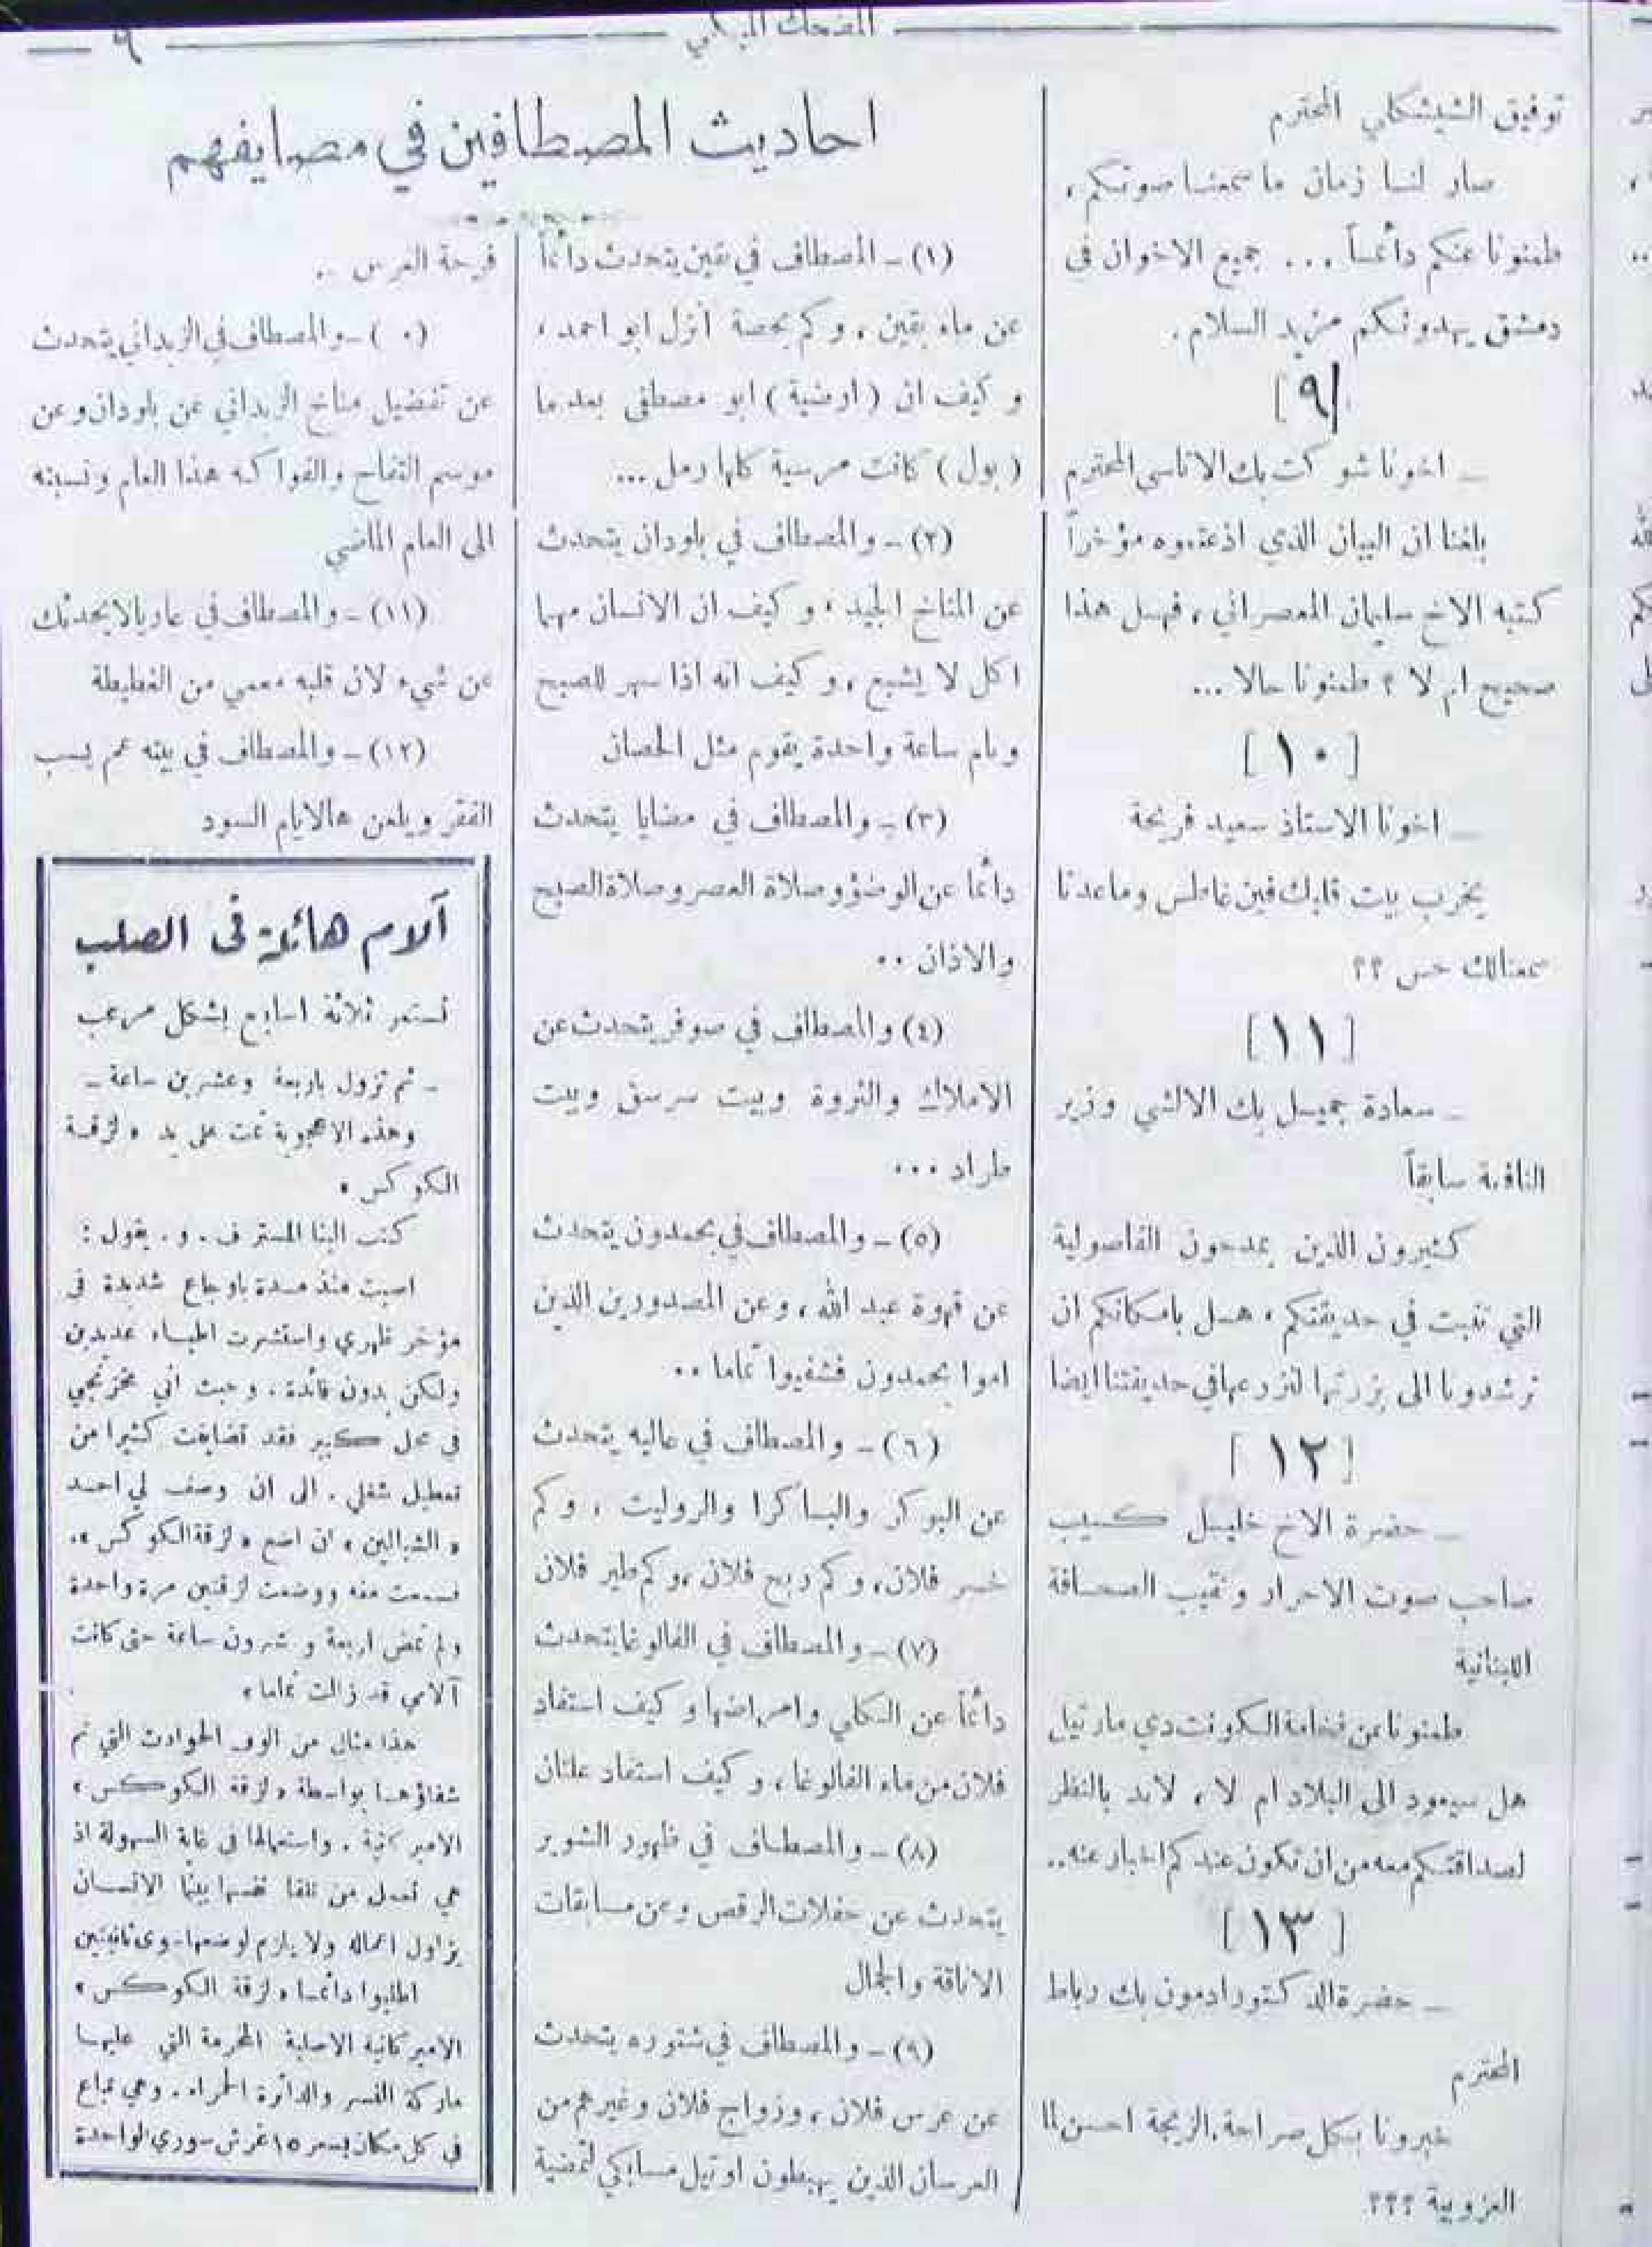 المضحك المبكي
٩
توفيق الشيشكلي المحترم
صار لنا زمان ما سمعنا صوتكم ،
طمنونا عنكم دائماً ... جميع الاخوان في
دمشق يهدونكم مزيد السلام .
[٩]
ــ اخونا شوكت بك الاتاسي المحترم
بلغنا ان البيان الذي اذعتموه مؤخراً
كتبه الاخ سليمان المعصراني ، فهل هذا
صحيح ام لا ؟ طمنونا حالا ...
[١٠]
ــ اخونا الاستاذ سعيد فريحة
يخرب بيت قلبك فين غاطس وماعدنا
سمعنالك حس ؟؟
[١١]
ــ سعادة جميل بك الالشي وزير
النافعة سابقاً
كثيرون الذين يمدحون الفاصولية
التي تنبت في حديقتكم ، هل بامكانكم ان
ترشدونا الى بزرتها لنزرعها في حديقتنا ايضا
[١٢]
ــ حضرة الاخ خليل كسيب
صاحب صوت الاحرار ونقيب الصحافة
اللبنانية
طمنونا عن فخامة الكونت دي مارتيل
هل سيعود الى البلاد ام لا ، لابد بالنظر
لصداقتكم معه من ان تكون عندكم اخبار عنه ..
[١٣]
ــ حضرة الدكتور ادمون بك رباط
المحترم
خبرونا بكل صراحة . الزيجة احسن لما
العزوبية ؟؟؟
احاديث المصطافين في مصايفهم
(١) ــ المصطاف في بقين يتحدث دائماً
عن ماء بقين ، وكم بحصة أنزل ابو احمد ،
وكيف ان ( ارضية ) ابو مصطفى بعدما
( بول ) كانت مرسية كلها رمل ...
(٢) ــ والمصطاف في بلودان يتحدث
عن المناخ الجيد ، وكيف ان الانسان مهما
اكل لا يشبع ، وكيف انه اذا سهر للصبح
ونام ساعة واحدة يقوم مثل الحصان
(٣) ــ والمصطاف في مضايا يتحدث
دائما عن الوضؤ وصلاة العصر وصلاة الصبح
والاذان ..
(٤) والمصطاف في صوفر يتحدث عن
الاملاك والثروة وبيت سرسق وبيت
طراد ...
(٥) ــ والمصطاف في بحمدون يتحدث
عن قهوة عبد الله ، وعن المصدورين الذين
اموا بحمدون فشفيوا تماما ..
(٦) ــ والمصطاف في عاليه يتحدث
عن البوكر والباكرا والروليت ، وكم
خسر فلان ، وكم ربح فلان ، وكم طير فلان
(٧) ــ والمصطاف في الفالوغا يتحدث
دائماً عن الكلي وامراضها وكيف استفاد
فلان من ماء الفالوغا ، وكيف استفاد علتان
(٨) ــ والمصطاف في ظهور الشوير
يتحدث عن حفلات الرقص وعن مسابقات
الاناقة والجمال
(٩) ــ والمصطاف في شتوره يتحدث
عن عرس فلان ، وزواج فلان وغيرهم من
العرسان الذين يهبطون اوتيل مسابكي لتمضية
فرحة العرس ..
(٠ ) ــ والمصطاف في الزبداني يتحدث
عن تفضيل مناخ الزبداني عن بلودان وعن
موسم التفاح والفواكه هذا العام ونسبته
الى العام الماضي
(١١) ــ والمصطاف في عاريا لا يحدثك
عن شيء لان قلبه معمي من الغطيطة
(١٢) ــ والمصطاف في بيته عم يسب
الفقر ويلعن هالايام السود
آلام هائلة في الصلب
تستمر ثلاثة اسابيع بشكل مرعب
ــ ثم تزول باربعة وعشرين ساعة ــ
وهذه الاعجوبة تمت على يد « لزقة
الكوكس »
كتب الينا المستر ف . و . يقول :
اصبت منذ مدة باوجاع شديدة في
مؤخر ظهري واستشرت اطباء عديدين
ولكن بدون فائدة . وحيث أني مخزنجي
في محل كبير فقد تضايقت كثيرا من
تعطيل شغلي . الى ان وصف لي احد
« الشيالين » ان اضع « لزقة الكوكس » .
فسمعت منه ووضعت لزقتين مرة واحدة
ولم تمض اربعة وعشرون ساعة حتى كانت
آلامي قد زالت تماما »
هذا مثال من الوف الحوادث التي تم
شفاؤها بواسطة « لزقة الكوكس »
الاميركية . واستعمالها في غاية السهولة اذ
هي تعمل من تلقا نفسها بينما الانسان
يزاول اعماله ولا يلزم لوضعها سوى ثانيتين
اطلبوا دائما « لزقة الكوكس »
الاميركانية الاصلية المخرمة التي عليها
ماركة النسر والدائرة الحمراء . وهي تباع
في كل مكان بسعر ١٥ غرش سوري الواحدة